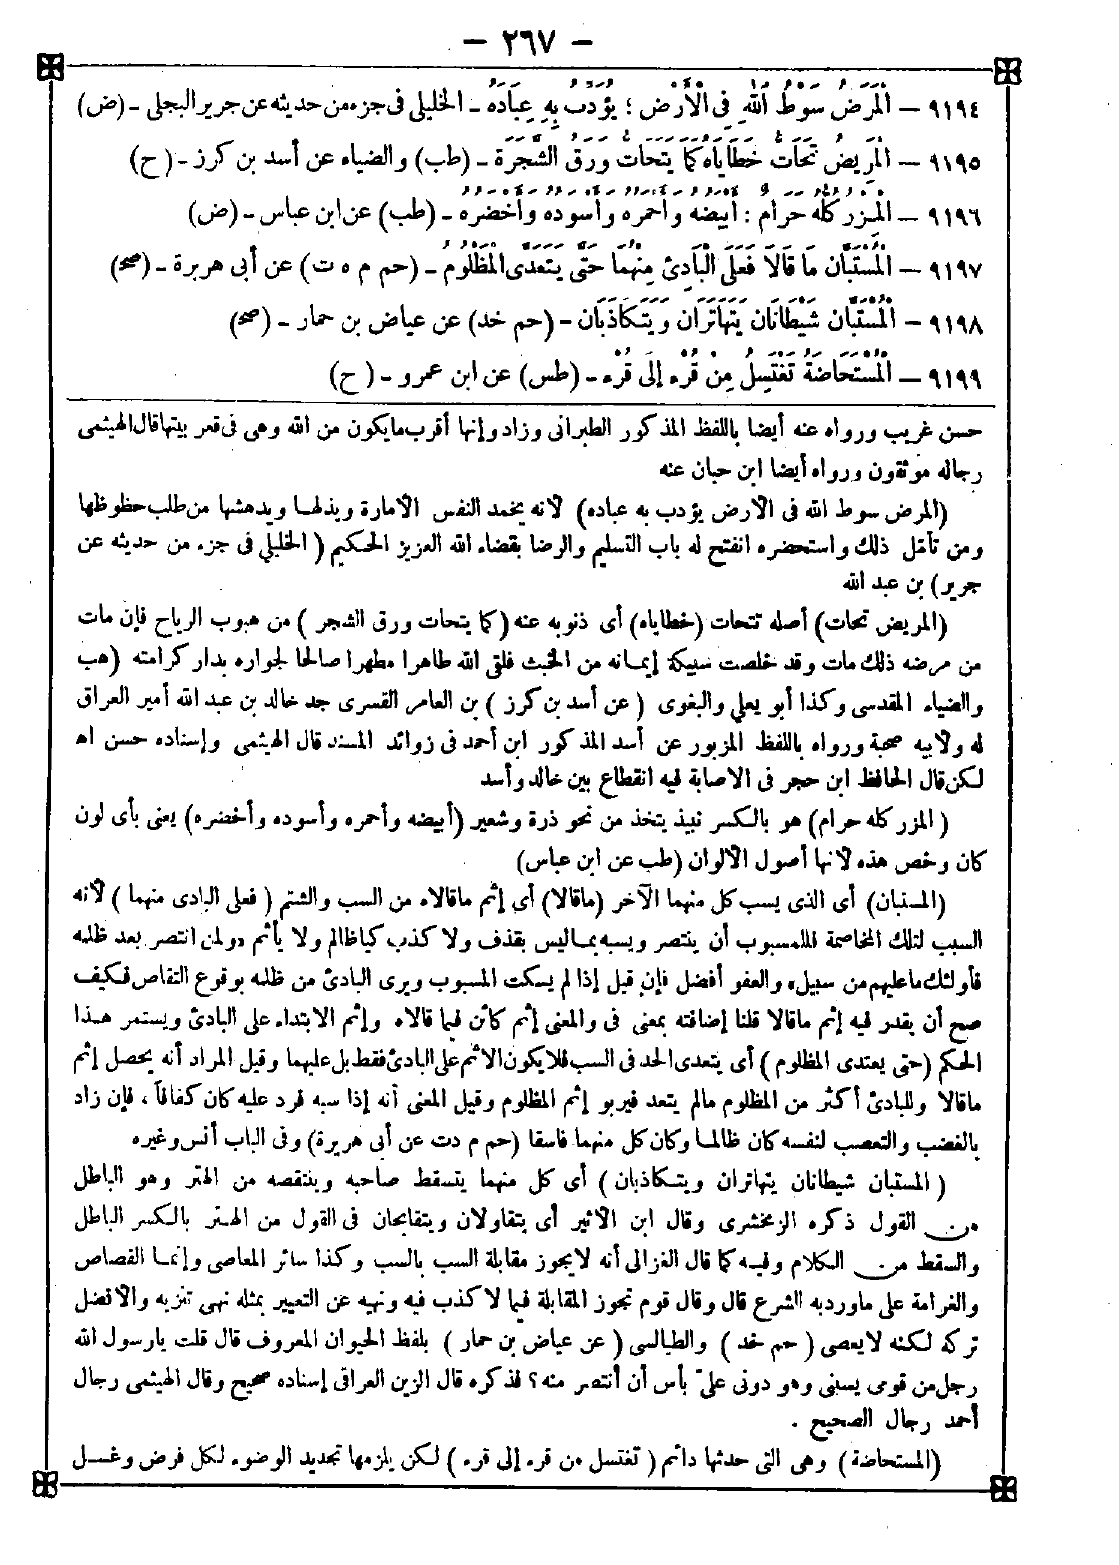 — ٢٦٧ —
٩١٩٤ — الْمَرَضُ سَوْطُ اللهِ فِى الْأَرْضِ ؛ يُؤَدِّبُ بِهِ عِبَادَهُ - الخليلى فى جزء من حديثه عن جرير البجلى - (ض)
٩١٩٥ — الْمَرِيضُ تَحَاتُّ خَطَايَاهُ كَمَا يَتَحَاتُّ وَرَقُ الشَّجَرَةِ - (طب) والضياء عن أسد بن كرز - (ح)
٩١٩٦ — الْمِزْرُ كُلُّهُ حَرَامٌ : أَبْيَضُهُ وَأَحْمَرُهُ وَأَسْوَدُهُ وَأَخْضَرُهُ - (طب) عن ابن عباس - (ض)
٩١٩٧ — الْمُسْتَبَّانِ مَا قَالَا فَعَلَى الْبَادِئِ مِنْهُمَا حَتَّى يَتَعَدَّى الْمَظْلُومُ - (حم م ه ت) عن أبى هريرة - (صح)
٩١٩٨ — الْمُسْتَبَّانِ شَيْطَانَانِ يَتَهَاتَرَانِ وَيَتَكَاذَبَانِ - (حم خد) عن عياض بن حمار - (صح)
٩١٩٩ — الْمُسْتَحَاضَةُ تَغْتَسِلُ مِنْ قُرْءٍ إِلَى قُرْءٍ - (طس) عن ابن عمرو - (ح)
حسن غريب ورواه عنه أيضا باللفظ المذكور الطبرانى وزاد وإنها أقرب ما يكون من الله وهى فى قعر بيتها قال الهيثمى
رجاله موثقون ورواه أيضا ابن حبان عنه
(المرض سوط الله فى الأرض يؤدب به عباده) لأنه يخمد النفس الأمارة ويذلها ويدهشها من طلب حظوظها
ومن تأمل ذلك واستحضره انفتح له باب التسليم والرضا بقضاء الله العزيز الحكيم (الخليلى فى جزء من حديثه عن
جرير) بن عبد الله
(المريض تحات) أصله تتحات (خطاياه) أى ذنوبه عنه (كما يتحات ورق الشجر) من هبوب الرياح فإن مات
من مرضه ذلك مات وقد خلصت سبيكة إيمانه من الخبث فلقى الله طاهرا مطهرا صالحا لجواره بدار كرامته (هب
والضياء المقدسى وكذا أبو يعلى والبغوى (عن أسد بن كرز) بن العامر القسرى جد خالد بن عبد الله أمير العراق
له ولابيه صحبة ورواه باللفظ المزبور عن أسد المذكور ابن أحمد فى زوائد المسند قال الهيثمى وإسناده حسن اه
لكن قال الحافظ ابن حجر فى الاصابة فيه انقطاع بين خالد وأسد
(المزر كله حرام) هو بالكسر نبيذ يتخذ من نحو ذرة وشعير (أبيضه وأحمره وأسوده وأخضره) يعنى بأى لون
كان وخص هذه لأنها أصول الألوان (طب عن ابن عباس)
(المستبان) أى الذى يسب كل منهما الآخر (ماقالا) أى إثم ماقالاه من السب والشتم (فعلى البادى منهما) لأنه
السبب لتلك المخاصمة فللمسبوب أن ينتصر ويسبه بما ليس بقذف ولا كذب كيا ظالم ولا يأثم «ولمن انتصر بعد ظلمه
فأولئك ما عليهم من سبيل» والعفو أفضل فإن قيل إذا لم يسكت المسبوب ويرى البادئ من ظلمه بوقوع التقاص فكيف
صح أن يقدر فيه إثم ماقالا قلنا إضافته بمعنى فى والمعنى إثم كائن فيما قالاه وإثم الابتداء على البادئ ويستمر هذا
الحكم (حتى يعتدى المظلوم) أى يتعدى الحد فى السب فلا يكون الاثم على البادئ فقط بل عليهما وقيل المراد أنه يحصل إثم
ماقالا وللبادئ أكثر من المظلوم مالم يتعد فيربو إثم المظلوم وقيل المعنى أنه إذا سبه فرد عليه كان كفافاً ، فإن زاد
بالغضب والتعصب لنفسه كان ظالما وكان كل منهما فاسقا (حم م دت عن أبى هريرة) وفى الباب أنس وغيره
(المستبان شيطانان يتهاتران ويتكاذبان) أى كل منهما يتسقط صاحبه وينتقصه من الهتر وهو الباطل
من القول ذكره الزمخشرى وقال ابن الأثير أى يتقاولان ويتقابحان فى القول من الهتر بالكسر الباطل
والسقط من الكلام وفيه كما قال الغزالى أنه لا يجوز مقابلة السب بالسب وكذا سائر المعاصى وإنما القصاص
والغرامة على ماورد به الشرع قال وقال قوم تجوز المقابلة فيما لا كذب فيه ونهيه عن التعيير بمثله نهى تنزيه والافضل
تركه لكنه لا يعصى (حم خد) والطيالسى (عن عياض بن حمار) بلفظ الحيوان المعروف قال قلت يارسول الله
رجل من قومى يسبنى وهو دونى علىّ بأس أن أنتصر منه؟ فذكره قال الزين العراقى إسناده صحيح وقال الهيثمى رجال
أحمد رجال الصحيح .
(المستحاضة) وهى التى حدثها دائم (تغتسل من قرء إلى قرء) لكن يلزمها تجديد الوضوء لكل فرض وغسل